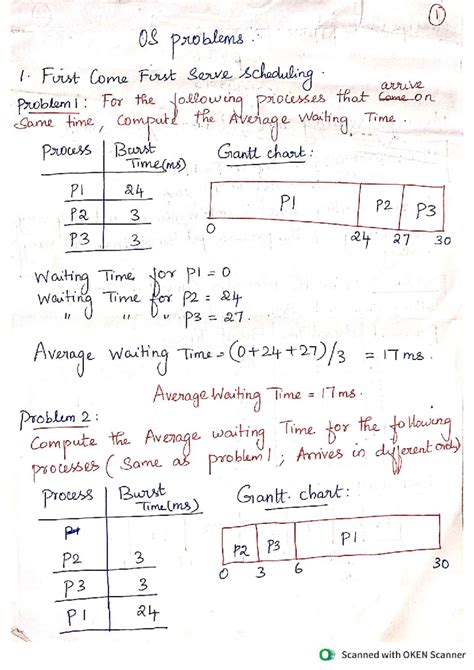 1
OS problems.
1. First Come First Serve Scheduling.
Problem 1: For the following processes that arrive on
Same time, Compute the Average Waiting Time.
Process Burst Time(ms) Gantt chart:
P1 24
P2 3
P3 3
P1 P2 P3
0 24 27 30
Waiting Time for P1 = 0
Waiting Time for P2 = 24
" " " P3 = 27.
Average Waiting Time = (0+24+27)/3 = 17ms.
Average Waiting Time = 17ms.
Problem 2:
Compute the Average waiting Time for the following
processes (Same as problem 1; Arrives in different order)
Process Burst Time(ms) Gantt. chart:
P1
P2 3
P3 3
P1 24
P2 P3 P1
0 3 6 30
Scanned with OKEN Scanner